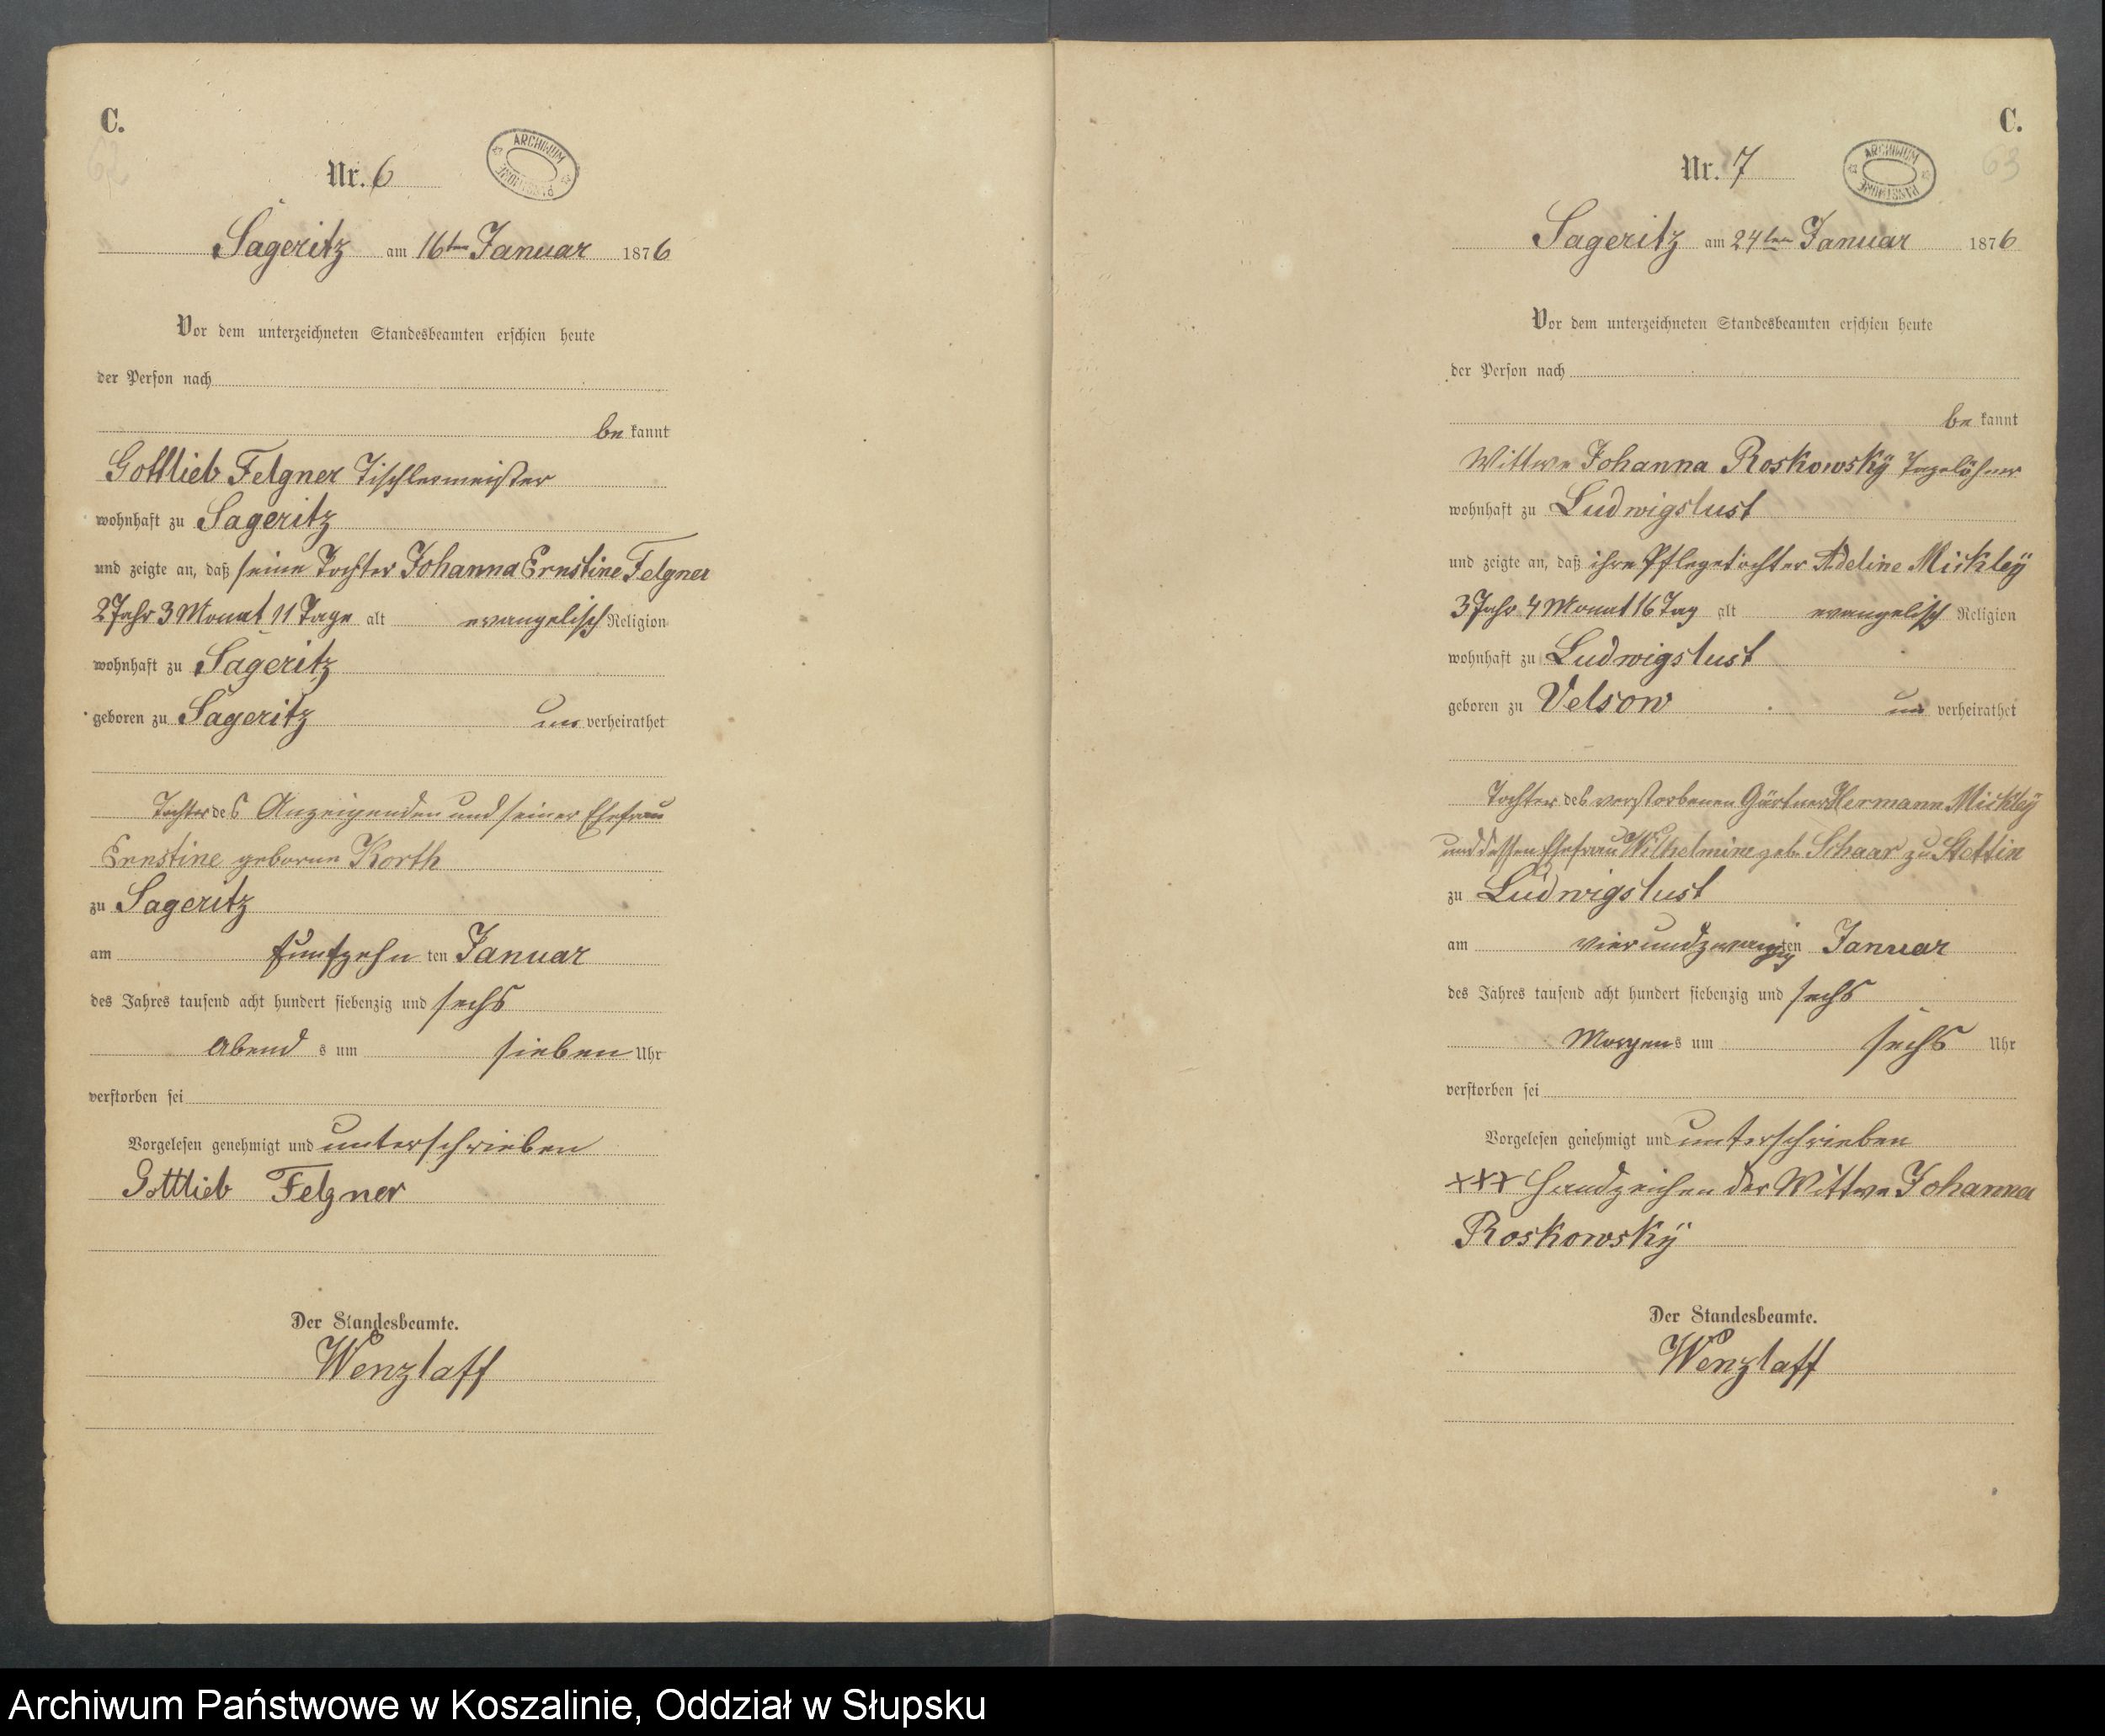 C.
62
Nr. 6
ARCHIWUM PAŃSTWOWE
Sageritz am 16ten Januar 1876
Vor dem unterzeichneten Standesbeamten erschien heute
der Person nach
be kannt
Gottlieb Felgner Tischlermeister
wohnhaft zu Sageritz
und zeigte an, daß seine Tochter Johanna Ernstine Felgner
2 Jahr 3 Monat 11 Tage alt evangelisch Religion
wohnhaft zu Sageritz
geboren zu Sageritz un verheirathet
Tochter des Anzeigenden und seiner Ehefrau
Ernstine geborne Korth
zu Sageritz
am fünfzehn ten Januar
des Jahres tausend acht hundert siebenzig und sechs
Abend s um sieben Uhr
verstorben sei
Vorgelesen genehmigt und unterschrieben
Gottlieb Felgner
Der Standesbeamte.
Wenzlaff
C.
63
Nr. 7
ARCHIWUM PAŃSTWOWE
Sageritz am 24ten Januar 1876
Vor dem unterzeichneten Standesbeamten erschien heute
der Person nach
be kannt
Wittwe Johanna Roskowskÿ Tagelöhner
wohnhaft zu Ludwigslust
und zeigte an, daß ihre Pflegetochter Adeline Mickleÿ
3 Jahr 4 Monat 16 Tag alt evangelisch Religion
wohnhaft zu Ludwigslust
geboren zu Velsow un verheirathet
Tochter des verstorbenen Gärtners Hermann Mickleÿ
und dessen Ehefrau Wilhelmine geb. Schaar zu Stettin
zu Ludwigslust
am vierundzwanzig ten Januar
des Jahres tausend acht hundert siebenzig und sechs
Morgens um sechs Uhr
verstorben sei
Vorgelesen genehmigt und unterschrieben
+++ Handzeichen der Wittwe Johanna
Roskowskÿ
Der Standesbeamte.
Wenzlaff
Archiwum Państwowe w Koszalinie, Oddział w Słupsku